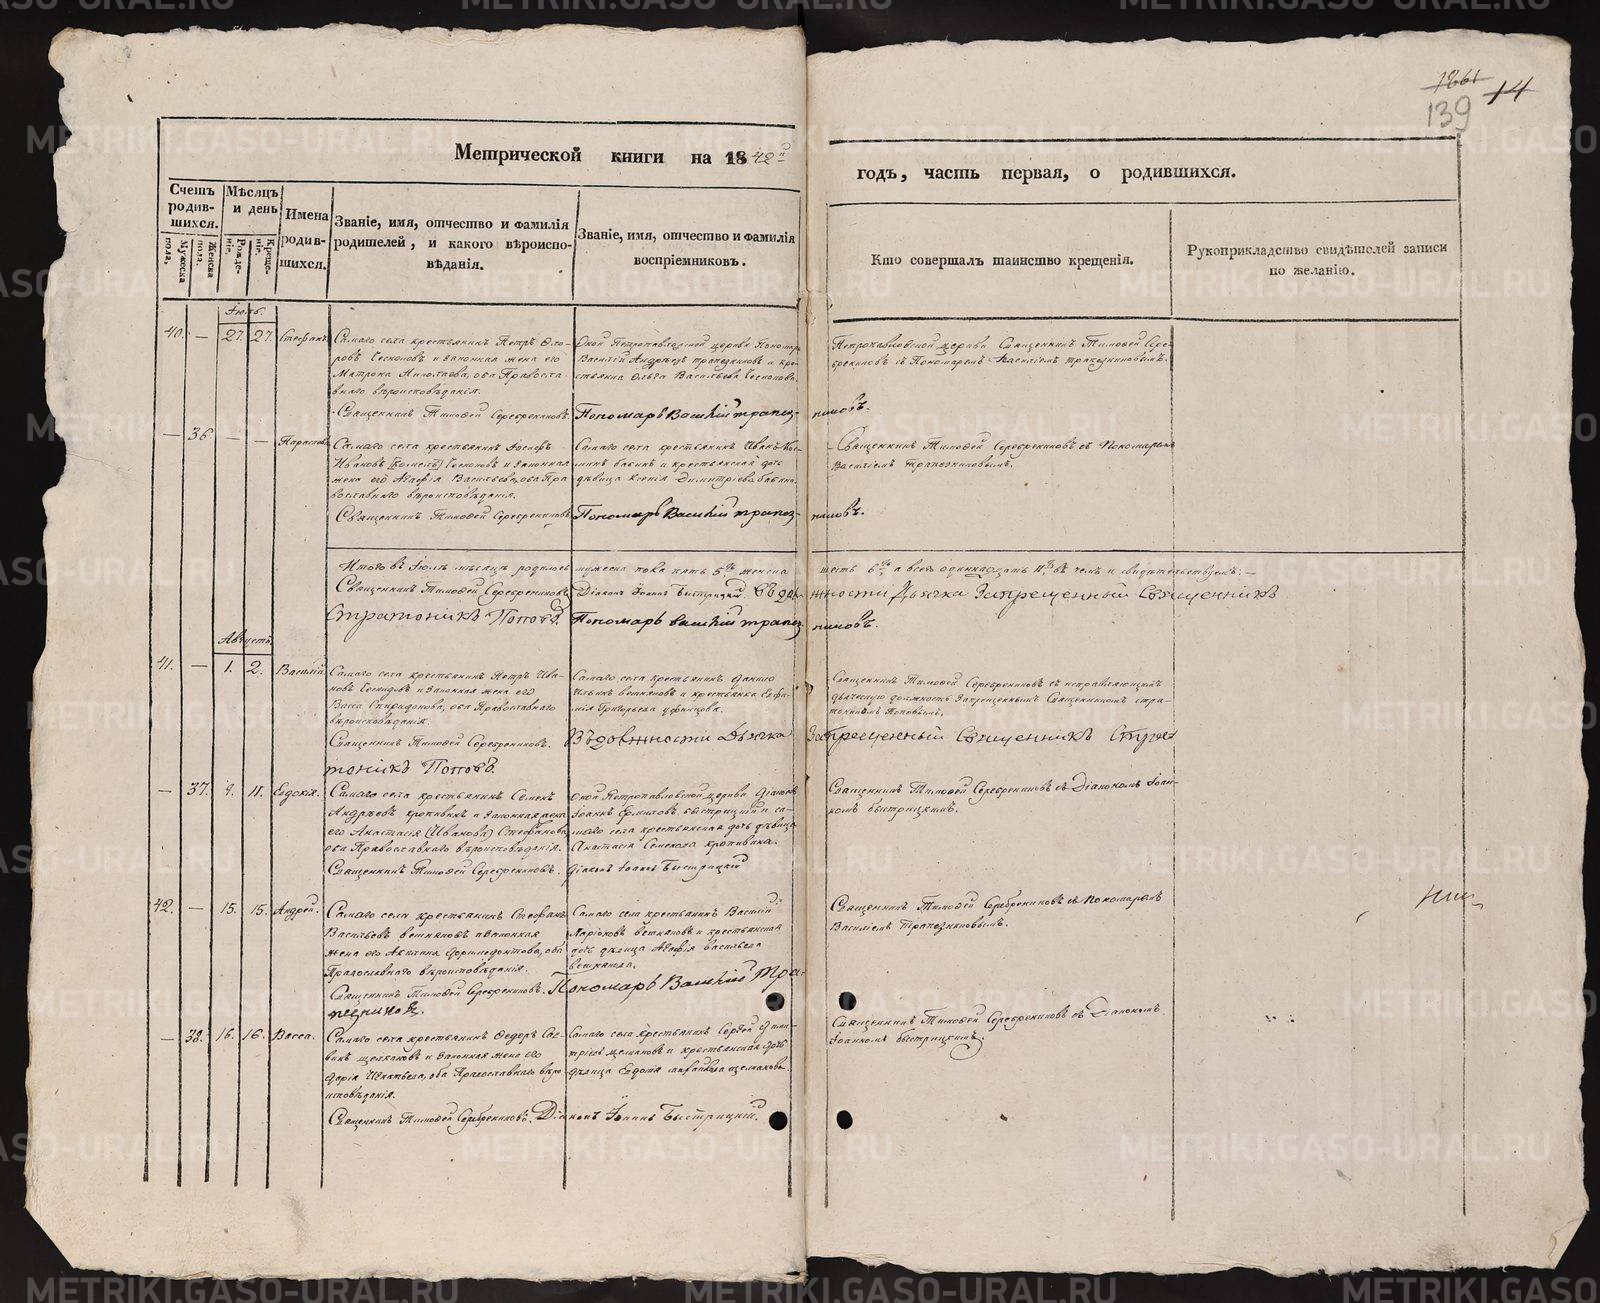 1861 14
139
Метрической книги на 1842й
годъ, часть первая, о родившихся.
Счетъ родив-
шихся.
Мужеска пола.
Женска пола.
Мѣсяцъ и день
Рожде-
ніе.
Креще-
ніе.
Имена
родив-
шихся.
Званіе, имя, отчество и фамилія
родителей, и какого вѣроиспо-
вѣданія.
Званіе, имя, отчество и фамилія
воспріемниковъ.
Кто совершалъ таинство крещенія.
Рукоприкладство свидѣтелей записи
по желанію.
Іюль.
40. — 27. 27. Стефанъ
Самаго села крестьянинъ Петръ
и законная жена его
Матрона Николаева, оба Правосла
внаго вѣроисповѣданія.
Священникъ Тимофей Серебренниковъ.
Оной Петропавловской церкви Пономарь
Василій Андреевъ трапезниковъ и кре-
стьянка Ольга Васильева
Пономарь Василій трапез-
никовъ.
Петропавловской церкви Священникъ Тимофей Сере-
бренниковъ съ Пономаремъ Василіемъ трапезниковымъ.
— 36. — —
Самаго села крестьянинъ
Ивановъ и законная
жена его Агафія Васильева, оба Пра
вославнаго вѣроисповѣданія.
Священникъ Тимофей Серебренниковъ
Самаго села крестьянинъ Иванъ
бабинъ и крестьянская дочь
дѣвица Ксенія Димитріева бабина.
Пономарь Василій трапез-
никовъ.
Священникъ Тимофей Серебренниковъ съ Пономаремъ
Василіемъ Трапезниковымъ.
Итого въ Іюлѣ мѣсяцѣ родилось мужеска пола пять 5ть женска
шесть 6ть, а всего одиннадцать 11ть въ чемъ и свидѣтельствуемъ: —
Священникъ Тимофей Серебренниковъ Діаконъ Іоаннъ Быстрицкій. Въ дол-
жности Дьячка Запрещенный Священникъ
Стратоникъ Поповъ. Пономарь василій трапез
никовъ.
Августъ.
41. — 1. 2. Василій
Самаго села крестьянинъ Петръ Ива-
новъ и законная жена его
Васса Спиридонова, оба Православнаго
вѣроисповѣданія.
Священникъ Тимофей Серебренниковъ.
Самаго села крестьянинъ
и крестьянка
Григорьева
Священникъ Тимофей Серебренниковъ съ исправляющимъ
дьяческую должность Запрещеннымъ Священникомъ стра-
тоникомъ Поповымъ.
Въ должности Дьячка Запрещенный Священникъ Стра
тоникъ Поповъ.
— 37. 9. 11. Евдокія.
Самаго села крестьянинъ Семенъ
Андреевъ кропивинъ и законная жена
его Анастасія (Иванова) Стефанова,
оба Православнаго вѣроисповѣданія.
Священникъ Тимофей Серебренниковъ.
Оной Петропавловской церкви діаконъ
Іоаннъ быстрицкій и са-
маго села крестьянская дочь дѣвица
Анастасія Семенова кропивина.
діаконъ Іоаннъ Быстрицкій
Священникъ Тимофей Серебренниковъ съ Діакономъ Іоан-
номъ быстрицкимъ.
42. — 15. 15. Андрей.
Самаго села крестьянинъ Стефанъ
Васильевъ и законная
жена его Акилина оба
Православнаго вѣроисповѣданія.
Священникъ Тимофей Серебренниковъ.
Самаго села крестьянинъ Василій
и крестьянская
дочь дѣвица Агафія Васильева
Пономарь Василій Тра-
пезниковъ.
Священникъ Тимофей Серебренниковъ съ пономаремъ
Василіемъ Трапезниковымъ.
— 38. 16. 16. Васса.
Самаго села крестьянинъ Ѳедоръ Сав-
винъ и законная жена его
Дарія Игнатьева, оба Православнаго вѣро-
исповѣданія.
Священникъ Тимофей Серебренниковъ.
Самаго села крестьянинъ Сергѣй Дими-
тріевъ и крестьянская дочь
дѣвица
Діаконъ Іоаннъ Быстрицкій.
Священникъ Тимофей Серебренниковъ съ Діакономъ
Іоанномъ быстрицкимъ.
METRIKI.GASO-URAL.RU